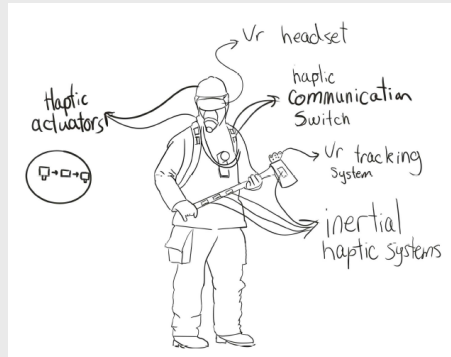 Vr headset
haptic
Communication
Switch
Haptic
actuators
Vr tracking
System
inertial
haptic systems